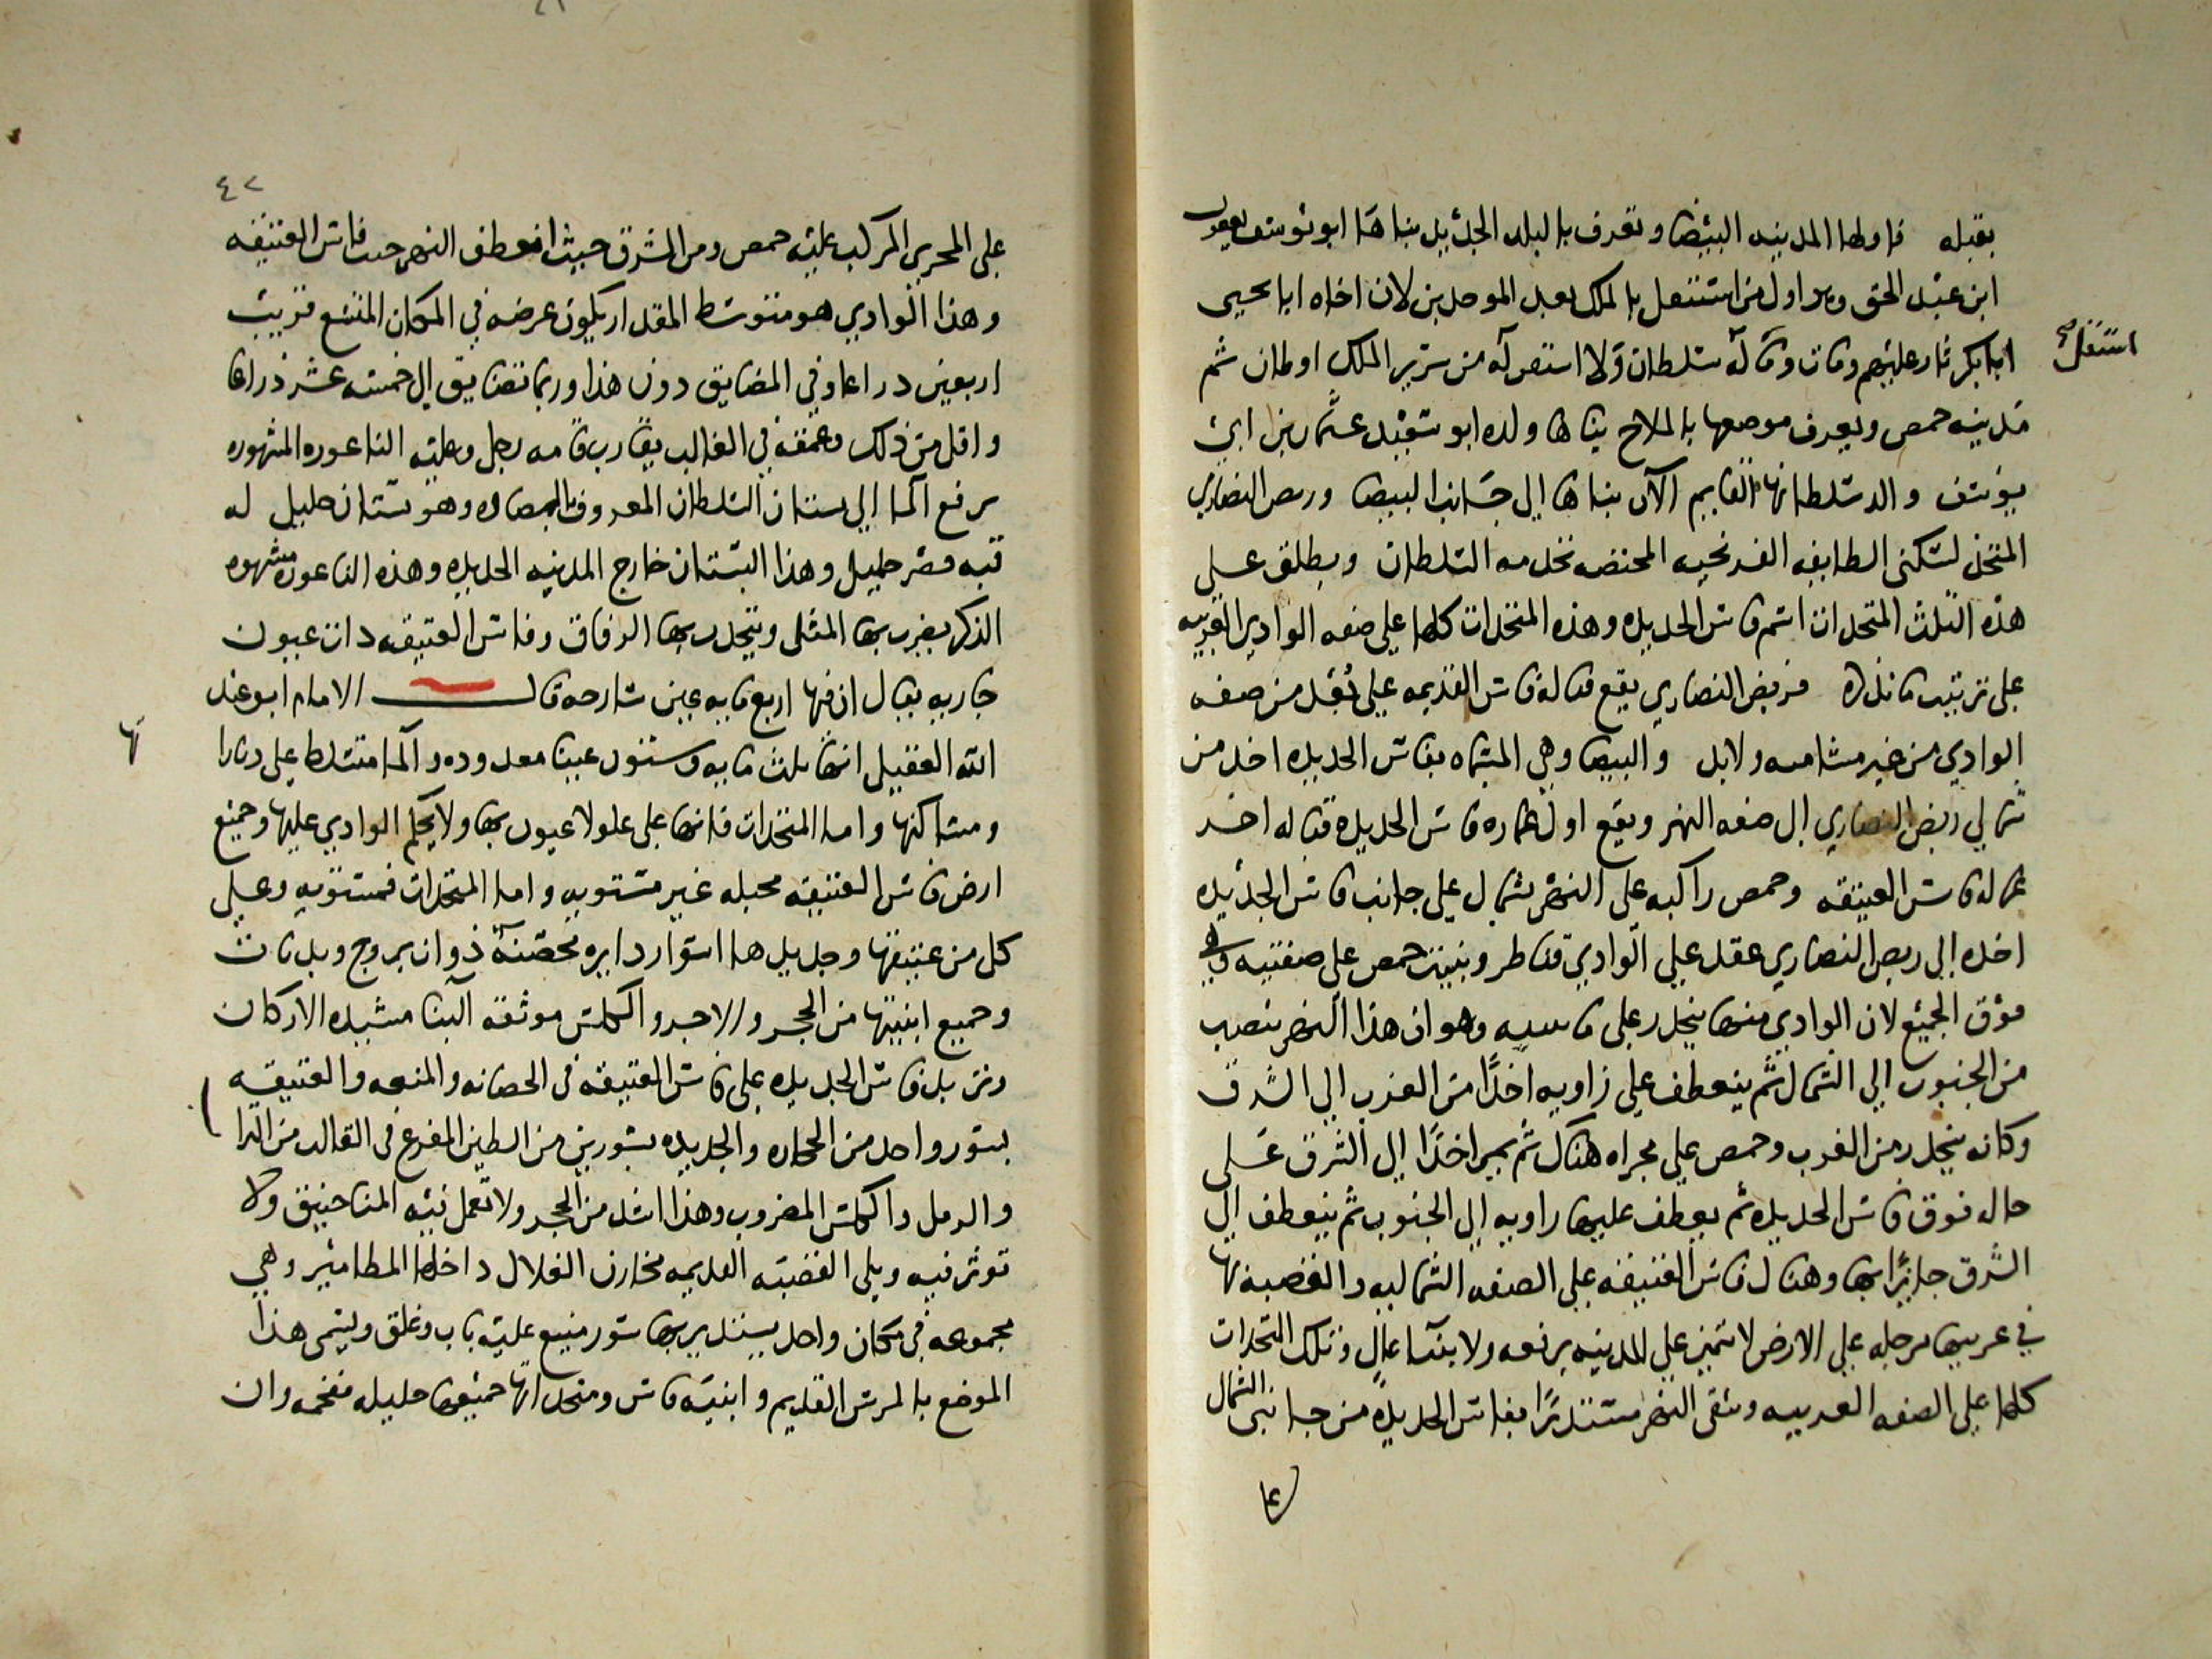 بقبله فاولها المدينه البيضا وتعرف بالبلد الجديد بناها ابو يوسف يعقوب
ابن عبد الحق وهو اول من استقل بالملك بعد الموحدين لان اخاه ابا يحيى
استقل صح
ابا بكر ثار عليهم ومات وما له سلطان ولا استقر له من سرير الملك اوطان ثم
مدينه حمص ويعرف موضعها بالملاح بناها ولده ابو سعيد عثمان بن ابي
يوسف والد سلطانها القايم الآن بناها الى جانب البيضا وربض النصاري
المتخذ لسكنى الطايفه الفرنجيه المختصه بخدمه السلطان ويطلق على
هذه الثلث المتجددات اسم فاس الجديده وهذه المتجددات كلها على ضفه الوادي الغربيه
على ترتيب ما نذكره فربض النصاري يقع قباله فاس القديمه على بعد من ضفه
الوادي من غير مشامته ولا بد والبيضا وهي المسماه بفاس الجديده اخذ من
شمالي ربض النصاري الى ضفه النهر ويقع اول عماره فاس الجديده قباله اخر
عماله فاس العتيقه وحمص راكبه على النهر بشمال على جانب فاس الجديده
اخده الى ربض النصاري عقد على الوادي قناطر وبنيت حمص على ضفتيه وهي
فوق الجميع لان الوادي منها ينحدر على فاس وهو ان هذا النهر ينصب
من الجنوب الي الشمال ثم ينعطف علي زاويه اخذًا من الغرب الي الشرق
وكانه ينحدر من الغرب وحمص علي مجراه هناك ثم يمر اخذًا الي الشرق على
حاله فوق فاس الجديده ثم يعطف عليها زاويه الي الجنوب ثم ينعطف الي
الشرق جايزًا بها وهناك فاس العتيقه على الضفه الشماليه والقصبه بها
في غربيها مرجله على الارض لا تتميز على المدينه برفعه ولا بنآ عالٍ وتلك المتجددات
كلها على الضفه الغربيه وبقى النهر مستديرًا بفاس الجديده من جانبي الشمال
على
٤٢
على المجرى المركب عليه حمص ومن الشرق حيث انعطف النهر حيث فاس العتيقه
وهذا الوادي هو متوسط المقدار يكون عرضه في المكان المتسع قريب
اربعين دراعا وفي المضايق دون هذا وربما تضايق الى خمسه عشر ذراعا
واقل من ذلك وعمقه في الغالب يقارب قامه رجل وعليه الناعوره المشهوره
يرفع الما الى بستان السلطان المعروف بالمصاره وهو بستان جليل له
قبه وقصر جليل وهذا البستان خارج المدينه الجديده وهذه الناعوره مشهوره
الذكر يضرب بها المثل ويتحدث بها الرفاق وفاس العتيقه ذات عيون
جاريه يقال ان فيها اربع مايه عين سارحه قال الامام ابو عبد
الله العقيلي انها ثلث مايه وستون عينا معدوده والما متسلط على ديارا
تها
ومساكنها واما المتجددات فانها على علو لا عيون بها ولا يحكم الوادي عليها وجميع
ارض فاس العتيقه محبله غير مستويه واما المتجددات فمستويه وعلى
كل من عتيقها وجديدها اسوار دايره محصنه ذوات بروج وبدنات
وجميع ابنيتها من الحجر والاجر والكلس موثقه البنا مشيده الاركان
وتزيد فاس الجديده على فاس العتيقه في الحصانه والمنعه والعتيقه
بسور واحد من الحجاره والجديده بسورين من الطين المفرغ في القالب من التراب
والرمل والكلس المضروب وهذا اشد من الحجر ولا تعمل فيه المناجنيق ولا
تؤثر فيه ويلي القصبه القديمه مخازن الغلال داخلها المطامير وهي
مجموعه في مكان واحد يستدير بها سور منيع عليه باب وغلق ويسمى هذا
الموضع بالمرس القديم وابنيه فاس ومتجدداتها جميعها جليله مفخمه وان